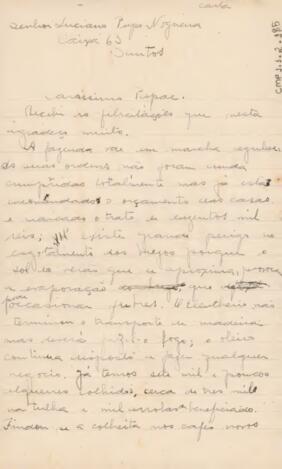 carta
Senhor Luciano Pupo Nogueira
Caixa 63
Santos
CMP 2.1.2-385
Caríssimo Papae.
Recebi as felicitações que nesta
agradeço muito.
A fazenda vae em marcha regular
as suas ordens não foram ainda
cumpridas totalmente mas já estão
encommendados o orçamento das casas
e marcados o trato e
reis; existe grande perigo no
esgotamento dos porque o
sol de verão que se aproxima, provoca
a evaporação que
pode occasionar febres. O Eleutherio não
terminou o transporte de madeira
mas devera fazel-o logo; o oleiro
continua disposto a fazer qualquer
negocio. Já temos seis mil e poucos
alqueires colhidos, cerca de tres mil
na tulha e mil arrobas beneficiado.
Findou-se a colheita nos cafés novos